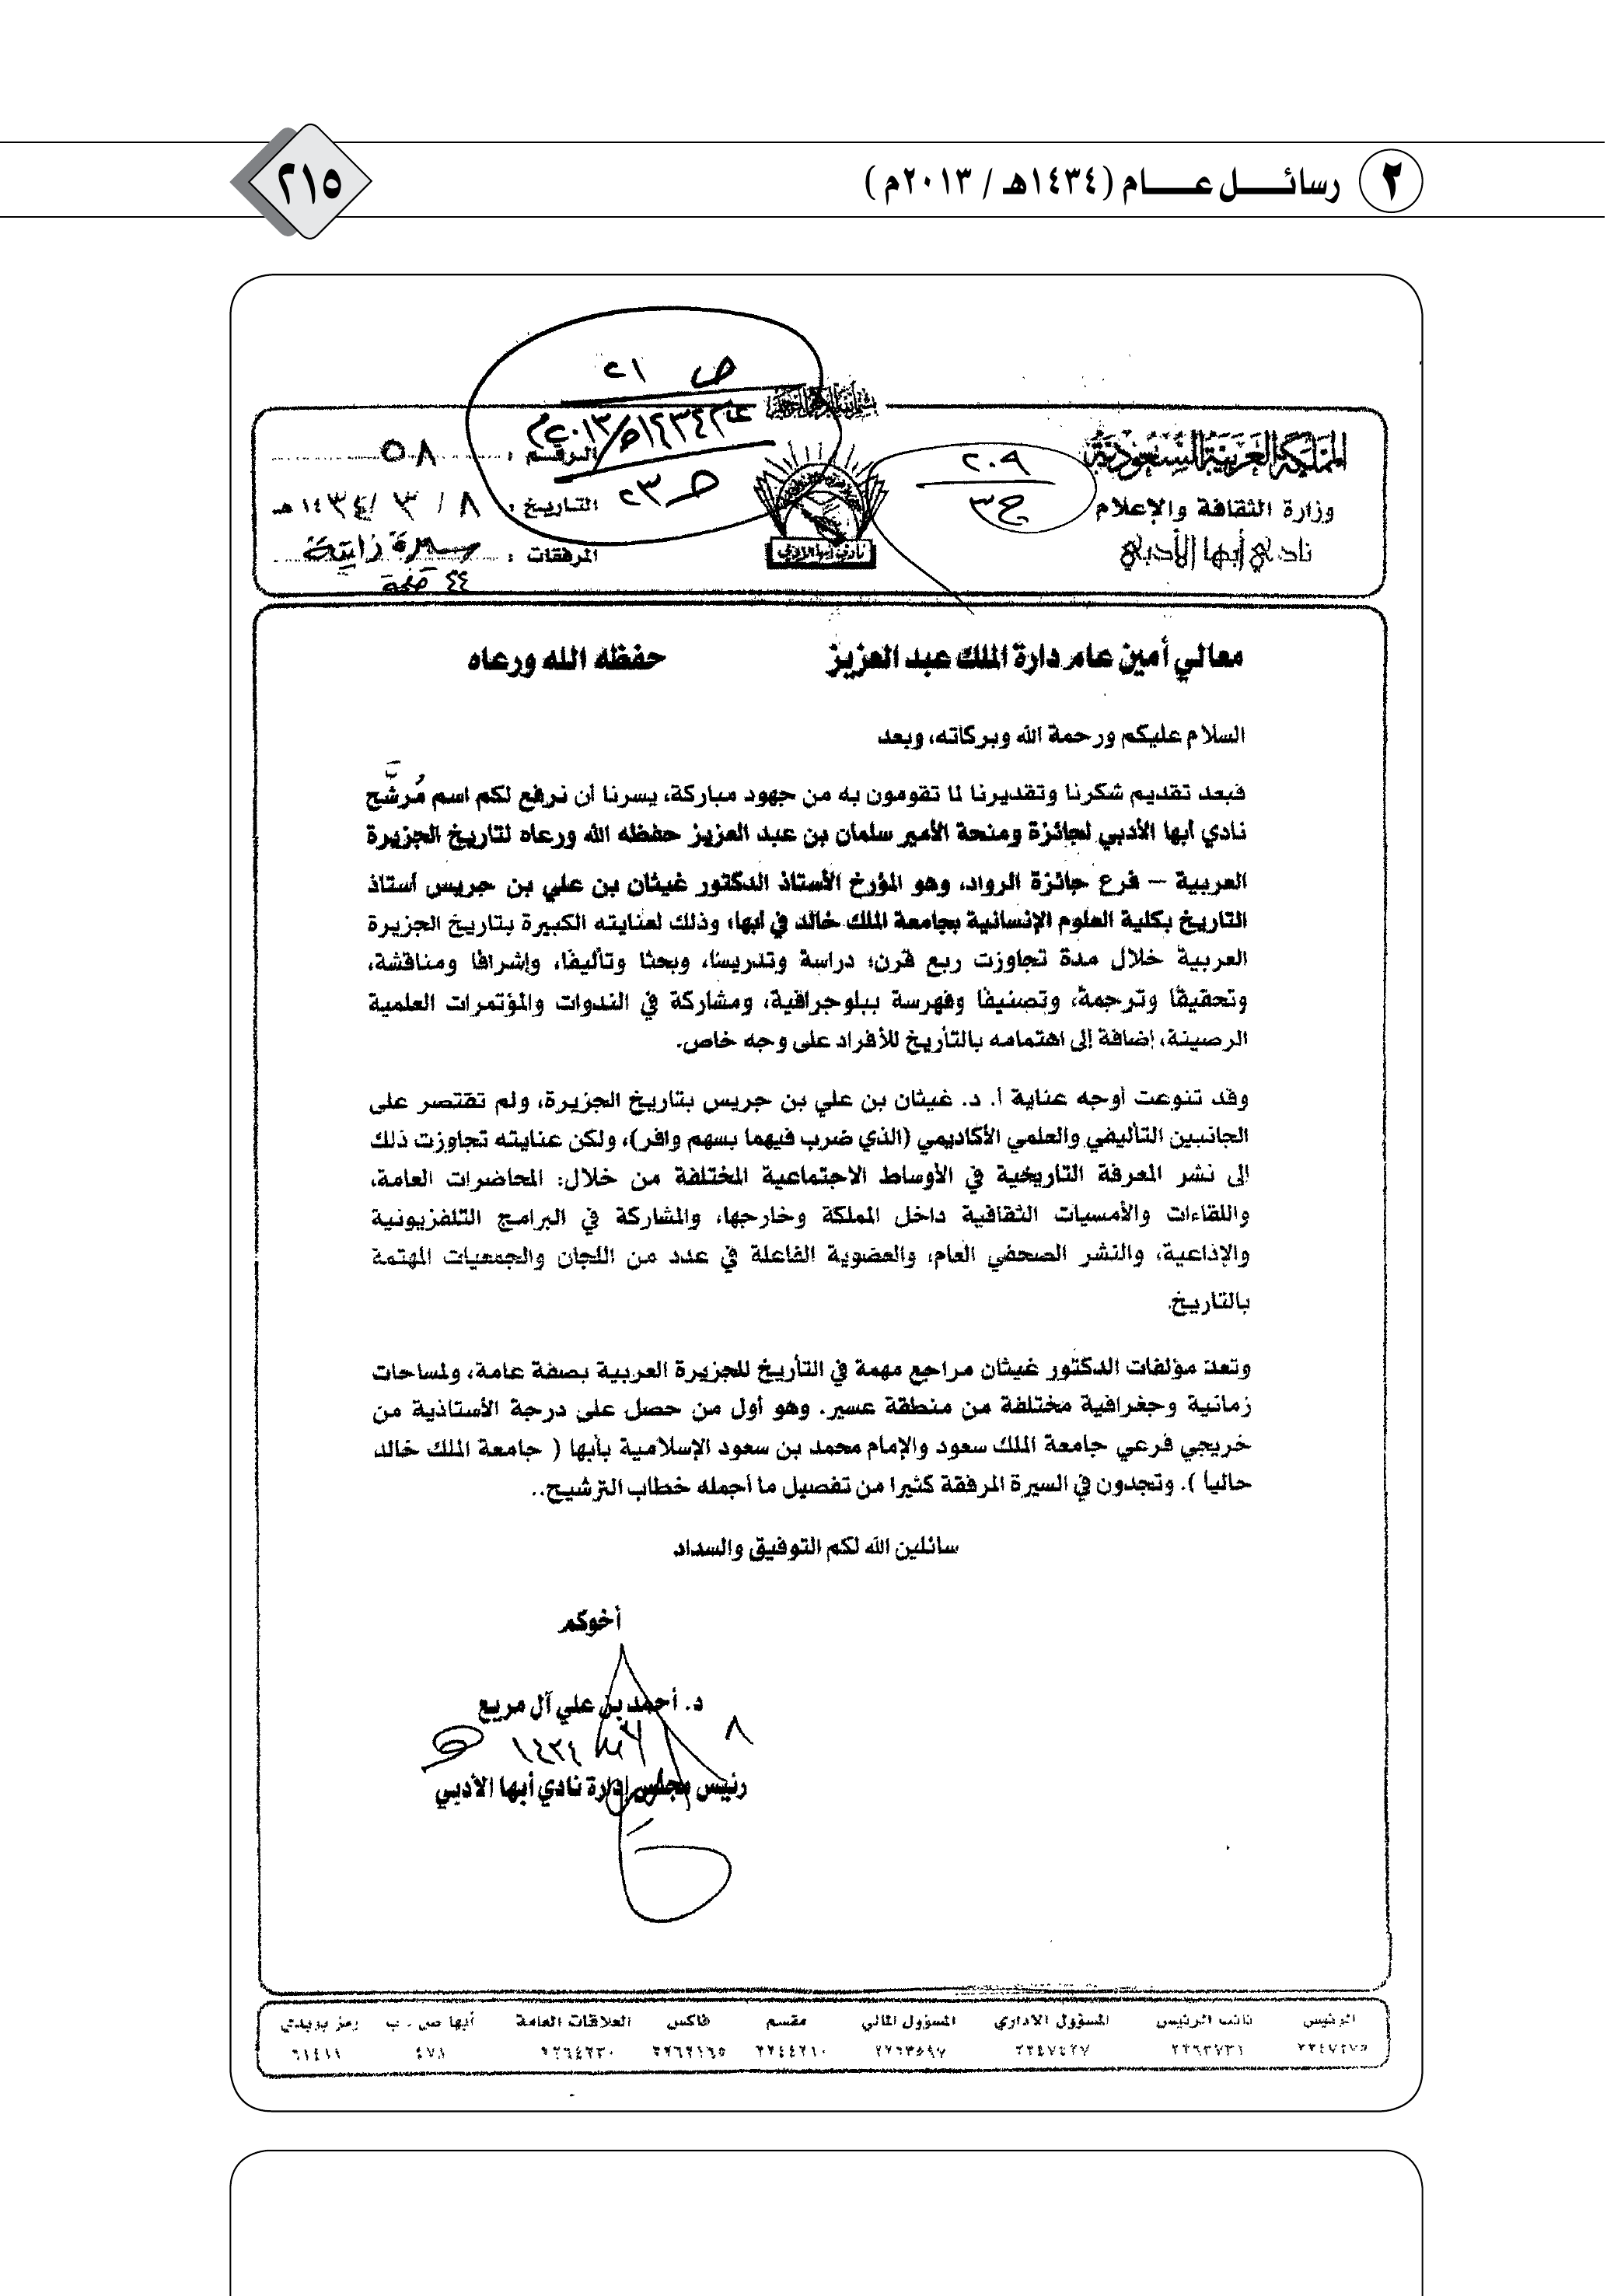 ٢ رسائــــل عــــام (١٤٣٤هـ / ٢٠١٣م)
٢١٥
ص ٢١
عام ١٤٣٤هـ/٢٠١٣م
ص ٢٣
المملكة العربية السعودية
وزارة الثقافة والإعلام
نادي أبها الأدبي
٢٠٩
ج ٣
نادي أبها الأدبي
الرقم : ٥٨
التاريخ : ٨ / ٣ / ١٤٣٤هـ
المرفقات : سيرة ذاتية
٤٤ صفحة
معالي أمين عام دارة الملك عبد العزيز حفظه الله ورعاه
السلام عليكم ورحمة الله وبركاته، وبعد
فبعد تقديم شكرنا وتقديرنا لما تقومون به من جهود مباركة، يسرنا أن نرفع لكم اسم مُرشَّح
نادي أبها الأدبي لجائزة ومنحة الأمير سلمان بن عبد العزيز حفظه الله ورعاه لتاريخ الجزيرة
العربية – فرع جائزة الرواد، وهو المؤرخ الأستاذ الدكتور غيثان بن علي بن جريس أستاذ
التاريخ بكلية العلوم الإنسانية بجامعة الملك خالد في أبها، وذلك لعنايته الكبيرة بتاريخ الجزيرة
العربية خلال مدة تجاوزت ربع قرن؛ دراسة وتدريسًا، وبحثا وتأليفًا، وإشرافًا ومناقشة،
وتحقيقًا وترجمة، وتصنيفًا وفهرسة ببلوجرافية، ومشاركة في الندوات والمؤتمرات العلمية
الرصينة، إضافة إلى اهتمامه بالتأريخ للأفراد على وجه خاص.
وقد تنوعت أوجه عناية أ. د. غيثان بن علي بن جريس بتاريخ الجزيرة، ولم تقتصر على
الجانبين التأليفي والعلمي الأكاديمي (الذي ضرب فيهما بسهم وافر)، ولكن عنايته تجاوزت ذلك
إلى نشر المعرفة التاريخية في الأوساط الاجتماعية المختلفة من خلال: المحاضرات العامة،
واللقاءات والأمسيات الثقافية داخل المملكة وخارجها، والمشاركة في البرامج التلفزيونية
والإذاعية، والنشر الصحفي العام، والعضوية الفاعلة في عدد من اللجان والجمعيات المهتمة
بالتاريخ.
وتعد مؤلفات الدكتور غيثان مراجع مهمة في التأريخ للجزيرة العربية بصفة عامة، ولمساحات
زمانية وجغرافية مختلفة من منطقة عسير. وهو أول من حصل على درجة الأستاذية من
خريجي فرعي جامعة الملك سعود والإمام محمد بن سعود الإسلامية بأبها ( جامعة الملك خالد
حالياً ). وتجدون في السيرة المرفقة كثيرا من تفصيل ما أجمله خطاب الترشيح..
سائلين الله لكم التوفيق والسداد
أخوكم
د. أحمد بن علي آل مريع
٨ ١٤٣٤ هـ
رئيس مجلس إدارة نادي أبها الأدبي
الرئيس نائب الرئيس المسؤول الاداري المسؤول المالي مقسم فاكس العلاقات العامة أبها ص . ب رمز بريدي
٢٢٤٤٢١٠ ٢٢٦٢١٦٥ ٤٧٨ ٦١٤١١